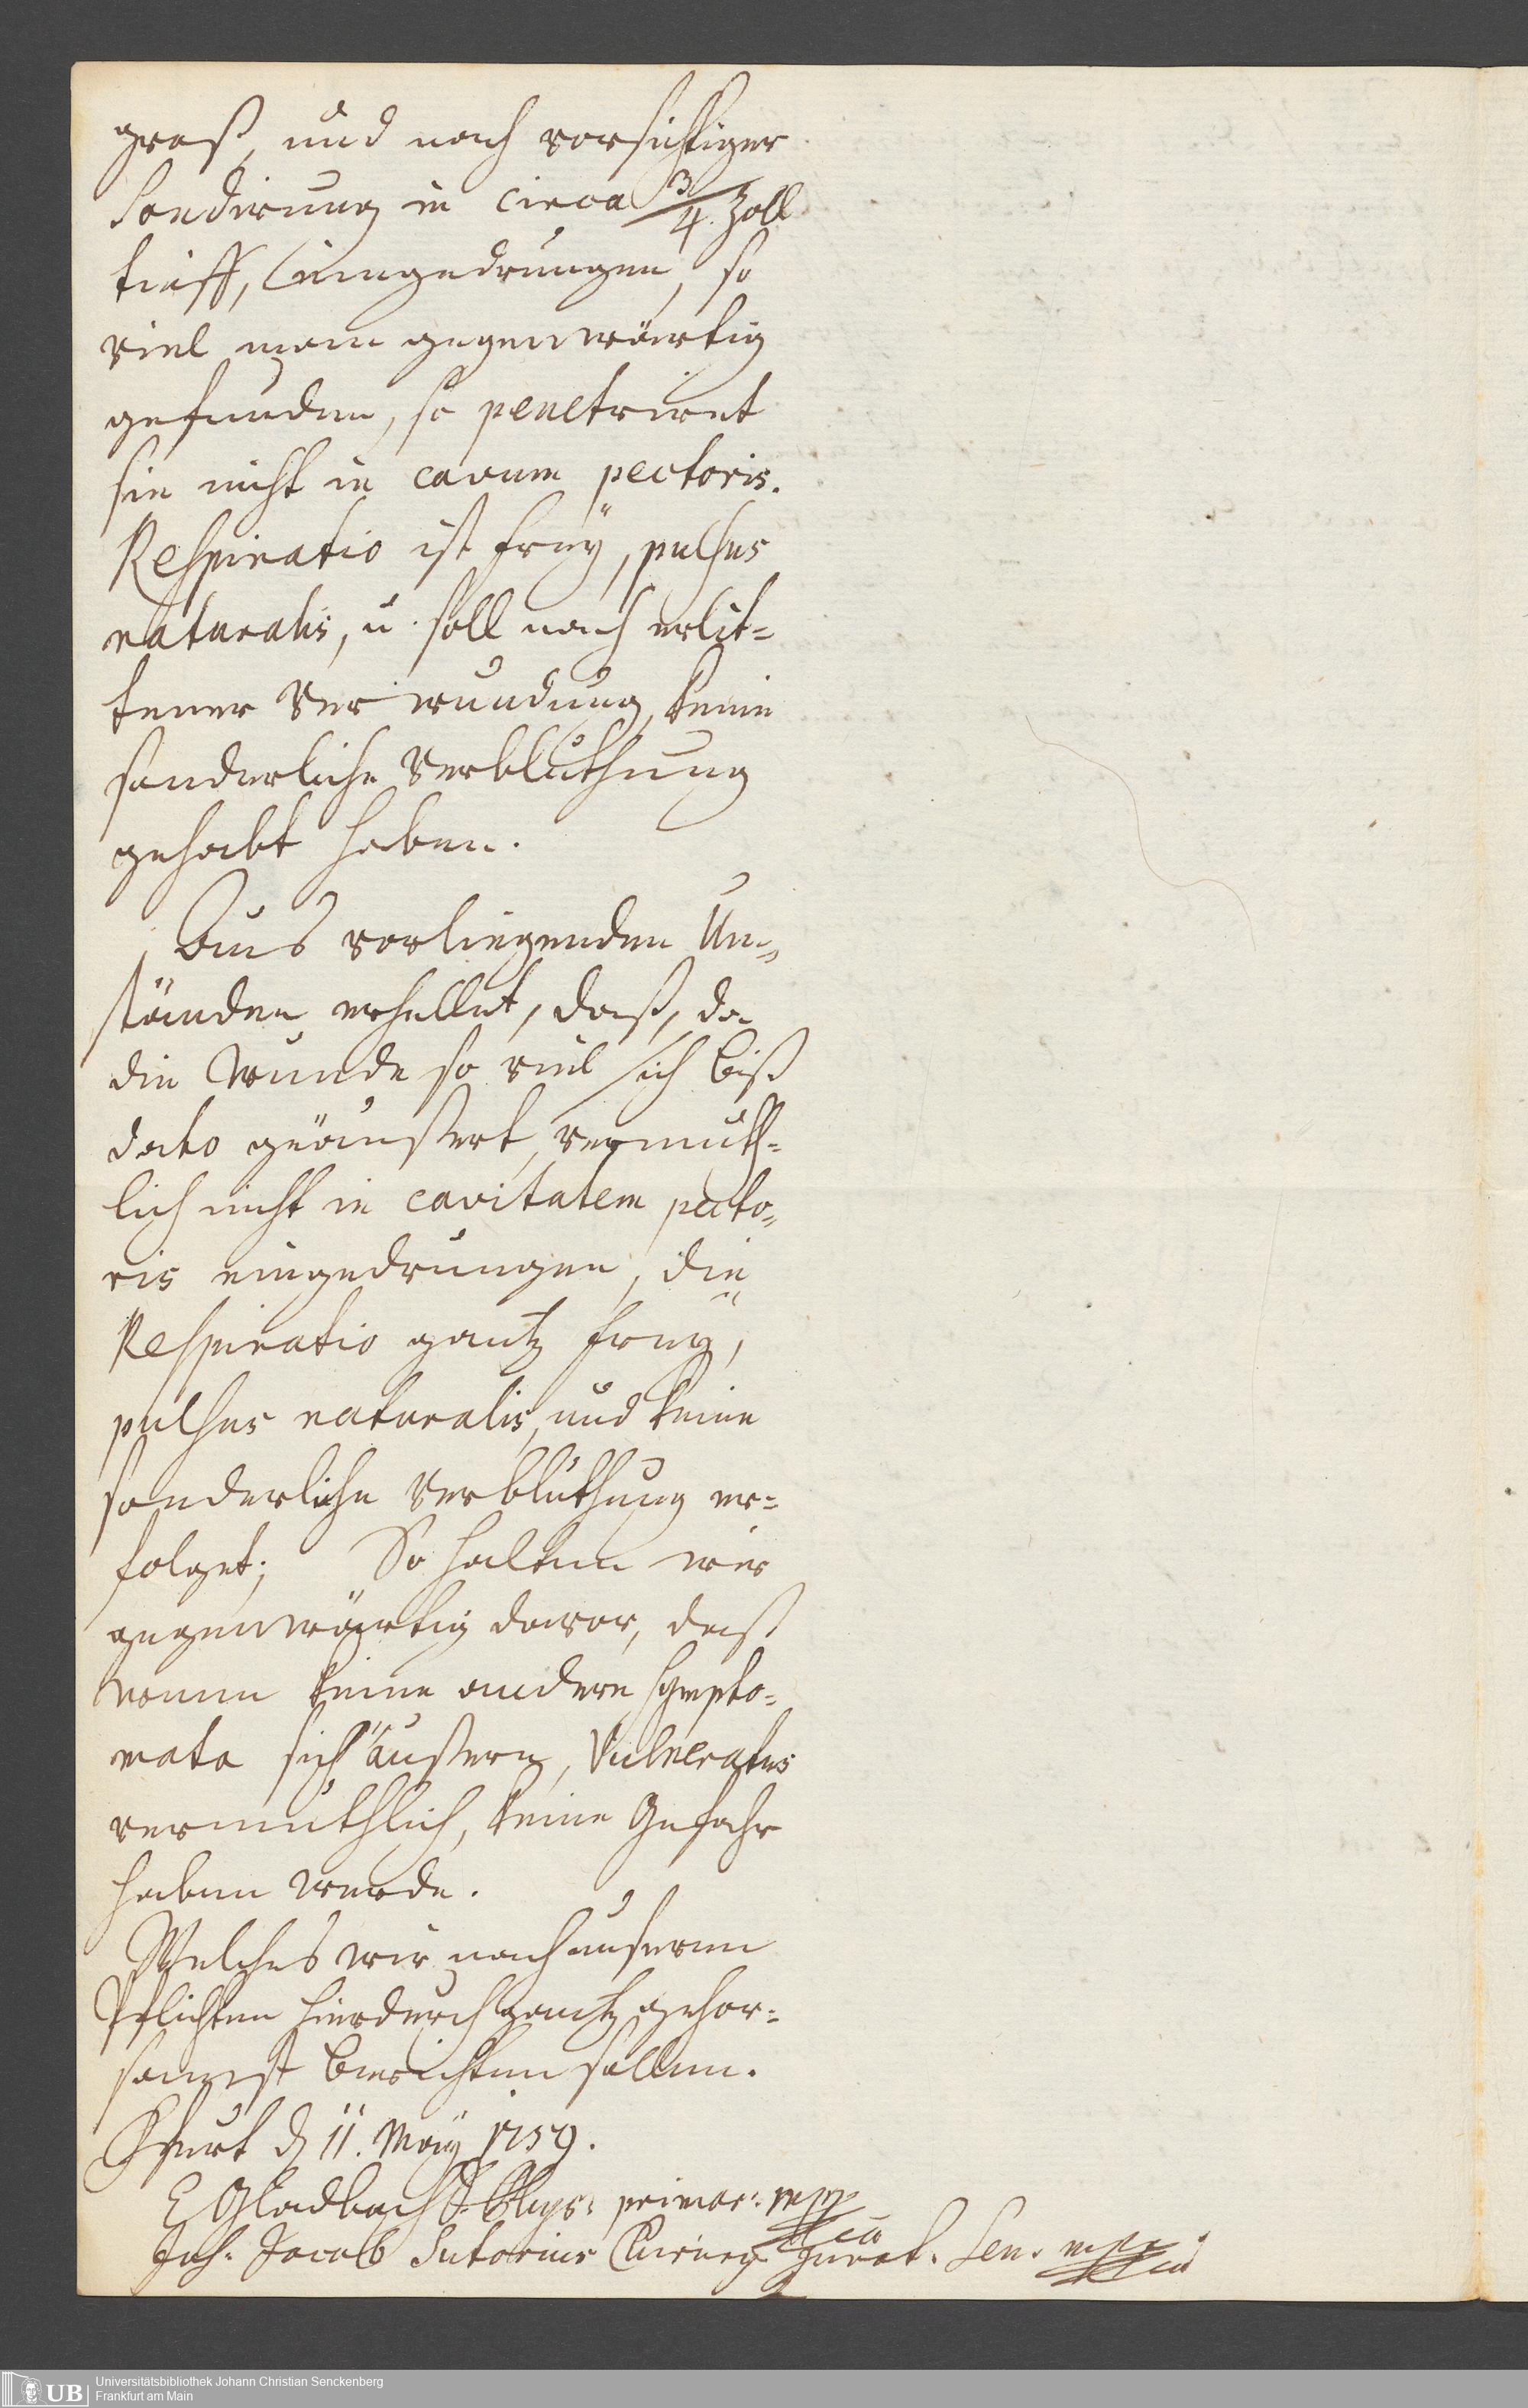 groß, und nach vorsichtiger
Sondirung in circa 3/4. Zoll
tieff, eingedrungen, so
viel man gegenwärtig
gefunden, so penetriret
sie nicht in cavum pectoris.
Respiratio ist freÿ, pulsus
naturalis, u. soll nach erlit=
tener Verwundung, keine
sonderliche Verbluthung
gehabt haben.
Aus vorliegenden Um=
ständen erhellet, daß, da
die Wunde so viel sich biß
dato geäussert, vermuth=
lich nicht in cavitatem pecto=
ris eingedrungen, die
Respiratio gantz freÿ,
pulsus naturalis, und keine
sonderliche Verbluthung er=
folget; So halten wir
gegenwärtig davor, daß
wenn keine andere sympto=
mata sich äussern, Vulneratus
vermuthlich, keine Gefahr
haben werde.
Welches wir nach unseren
Pflichten hierdurch gantz gehor=
samst berichten sollen.
Ffurt d 11. Maÿ 1759.
E Gladbach D. Phys: primar: mpp
Joh: Jacob Sutorius Chirurg Jurat. Sen. mpp
UB Universitätsbibliothek Johann Christian Senckenberg
Frankfurt am Main